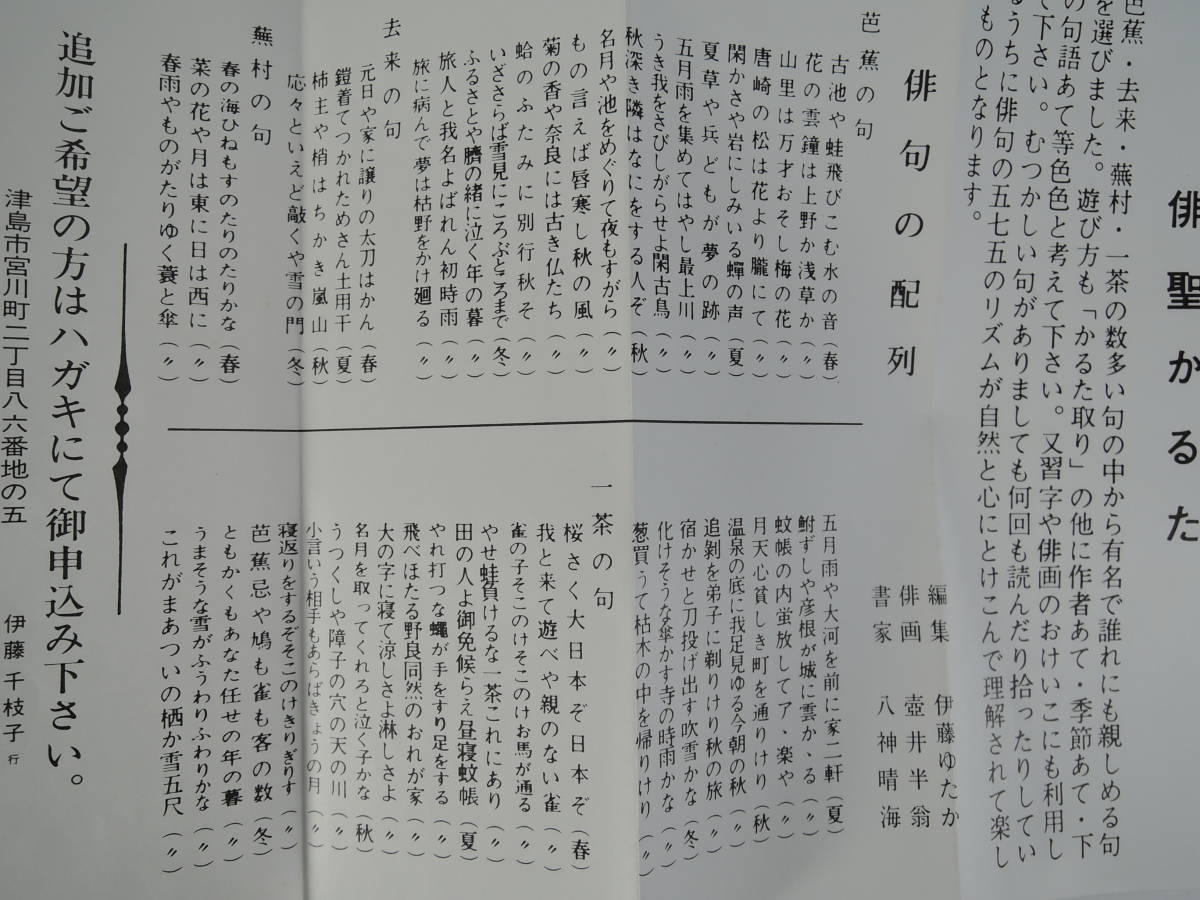 俳聖かるた
芭蕉・去来・蕪村・一茶の数多い句の中から有名で誰れにも親しめる句
を選びました。遊び方も「かるた取り」の他に作者あて・季節あて・下
の句語あて等色色と考えて下さい。又習字や俳画のおけいこにも利用し
て下さい。むつかしい句がありましても何回も読んだり拾ったりしてい
るうちに俳句の五七五のリズムが自然と心にとけこんで理解されて楽し
ものとなります。
編集 伊藤ゆたか
俳画 壺井半翁
書家 八神晴海
俳句の配列
芭蕉の句
古池や蛙飛びこむ水の音(春)
花の雲鐘は上野か浅草か(〃)
山里は万才おそし梅の花(〃)
唐崎の松は花より朧にて(〃)
閑かさや岩にしみいる蟬の声(夏)
夏草や兵どもが夢の跡(〃)
五月雨を集めてはやし最上川(〃)
うき我をさびしがらせよ閑古鳥(〃)
秋深き隣はなにをする人ぞ(秋)
名月や池をめぐりて夜もすがら(〃)
もの言えば唇寒し秋の風(〃)
菊の香や奈良には古き仏たち(〃)
蛤のふたみに別行秋そ(〃)
いざさらば雪見にころぶところまで(冬)
ふるさとや臍の緒に泣く年の暮(〃)
旅人と我名よばれん初時雨(〃)
旅に病んで夢は枯野をかけ廻る(〃)
去来の句
元日や家に譲りの太刀はかん(春)
鎧着てつかれためさん土用干(夏)
柿主や梢はちかき嵐山(秋)
応々といえど敲くや雪の門(冬)
蕪村の句
春の海ひねもすのたりのたりかな(春)
菜の花や月は東に日は西に(〃)
春雨やものがたりゆく蓑と傘(〃)
五月雨や大河を前に家二軒(夏)
鮒ずしや彦根が城に雲か、る(〃)
蚊帳の内蛍放してア、楽や(〃)
月天心貧しき町を通りけり(秋)
温泉の底に我足見ゆる今朝の秋(〃)
追剝を弟子に剃りけり秋の旅(〃)
宿かせと刀投げ出す吹雪かな(冬)
化けそうな傘かす寺の時雨かな(〃)
葱買うて枯木の中を帰りけり(〃)
一茶の句
桜さく大日本ぞ日本ぞ(春)
我と来て遊べや親のない雀(〃)
雀の子そこのけそこのけお馬が通る(〃)
やせ蛙負けるな一茶これにあり(〃)
田の人よ御免候らえ昼寝蚊帳(夏)
やれ打つな蠅が手をすり足をする(〃)
飛べほたる野良同然のおれが家(〃)
大の字に寝て涼しさよ淋しさよ(〃)
名月を取ってくれろと泣く子かな(秋)
うつくしや障子の穴の天の川(〃)
小言いう相手もあらばきょうの月(〃)
寝返りをするぞそこのけきりぎりす(〃)
芭蕉忌や鳩も雀も客の数(冬)
ともかくもあなた任せの年の暮(〃)
うまそうな雪がふうわりふわりかな(〃)
これがまあついの栖か雪五尺(〃)
追加ご希望の方はハガキにて御申込み下さい。
津島市宮川町二丁目八六番地の五
伊藤千枝子 行